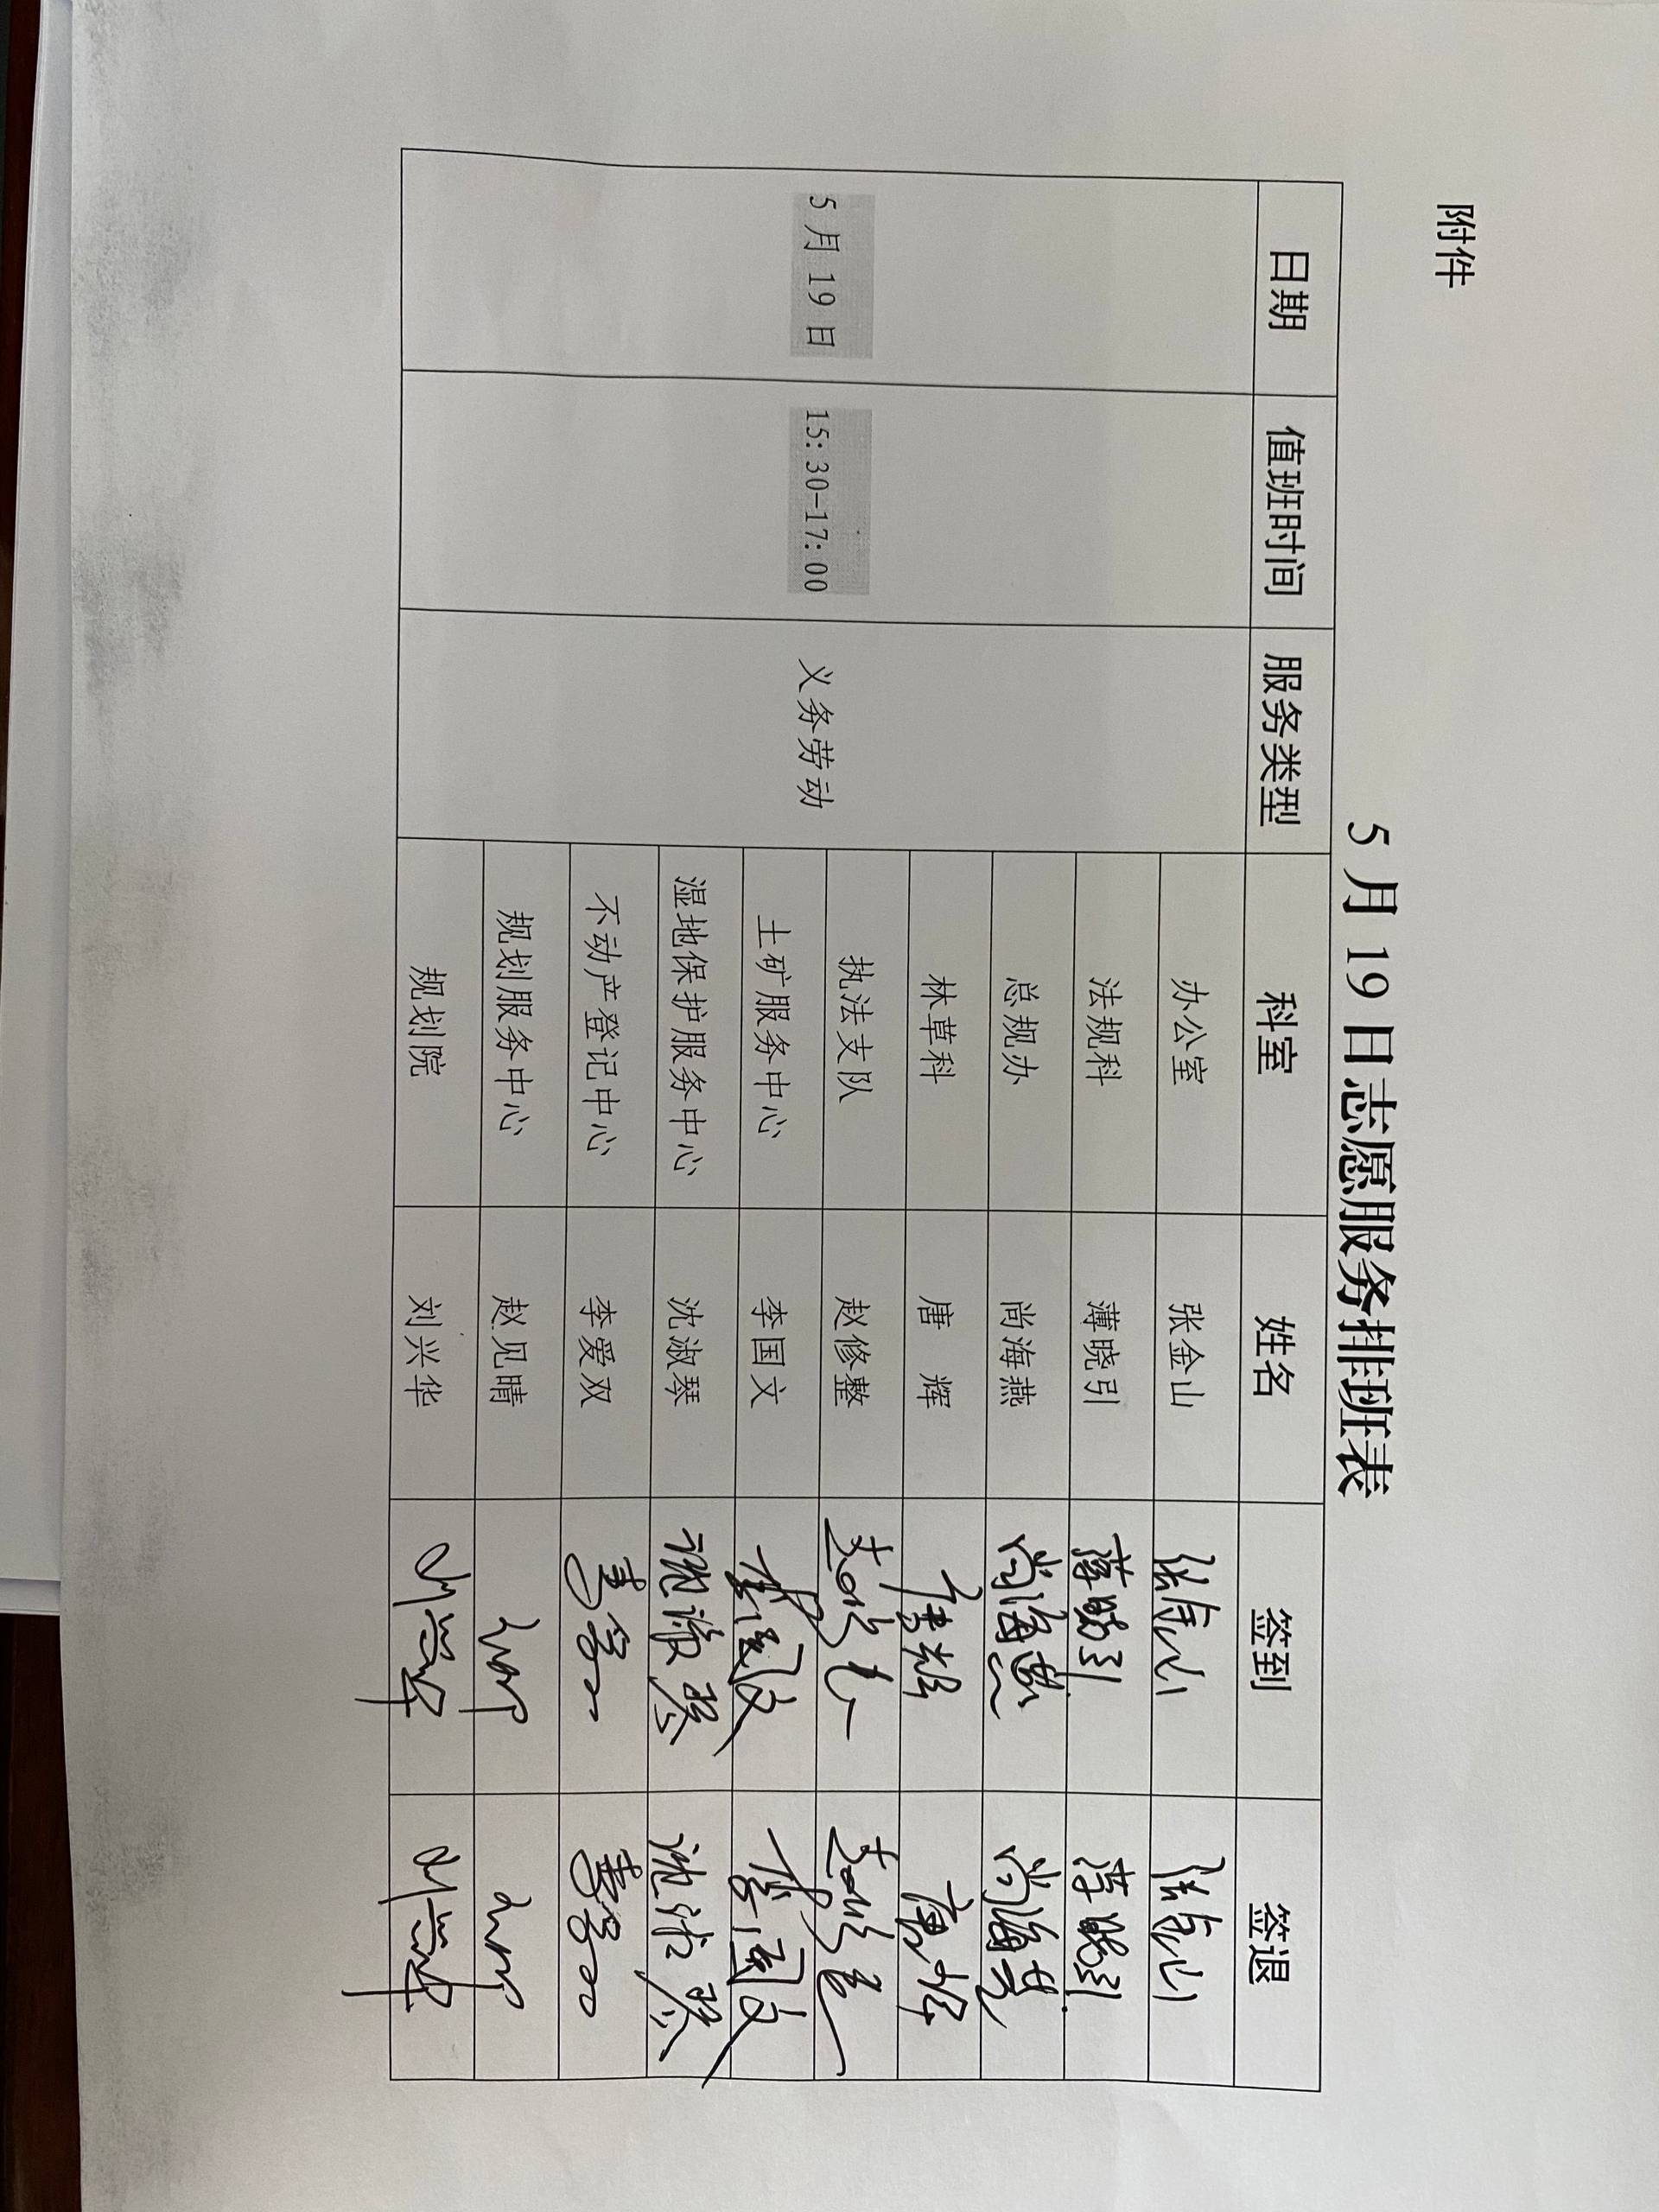 附件
5月19日志愿服务排班表
日期 值班时间 服务类型 科室 姓名 签到 签退
5月19日 15:30-17:00 义务劳动
办公室 张金山
法规科 薄晓引 薄晓引 薄晓引
总规办 尚海燕 尚海燕 尚海燕
林草科 唐 辉 唐辉 唐辉
执法支队 赵修整
土矿服务中心 李国文 李国文 李国文
湿地保护服务中心 沈淑琴 沈淑琴 沈淑琴
不动产登记中心 李爱双
规划服务中心 赵见晴
规划院 刘兴华 刘兴华 刘兴华